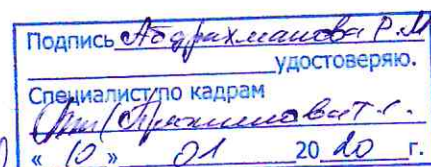 Подпись Абдрахманова Р.М
удостоверяю.
Специалист по кадрам
« 10 » 01 20 20 г.